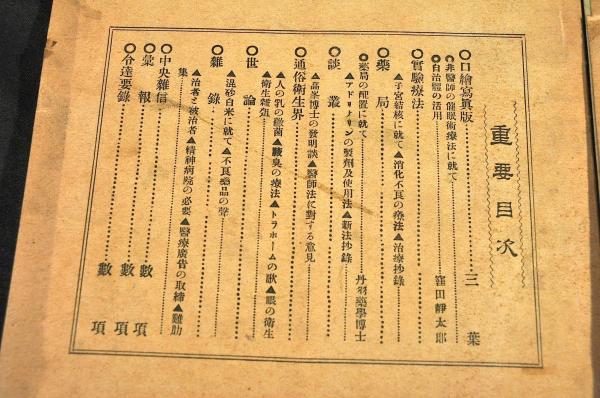 重要目次
◎口繪寫真版…三葉
◎非醫師の催眠術療法に就て
◎自治體の活用…窪田靜太郎
◎實驗療法
▲子宮結核に就て▲消化不良の療法▲治療抄錄
◎藥局
◎藥局の配置に就て…丹羽藥學博士
▲アドリナリンの製劑及使用法▲新法抄錄
◎談叢
▲高峯博士の發明談▲醫師法に對する意見
◎通俗衛生界
▲人の乳の黴菌▲腋臭の療法▲トラホームの歌▲眼の衛生
▲衛生雜爼
◎世論
▲混砂白米に就て▲不良藥品の聲
◎雜錄
▲治者と被治者▲精神病院の必要▲醫療廣告の取締▲雞肋
集
◎中央雜信…數項
◎彙報…數項
◎令達要錄…數項